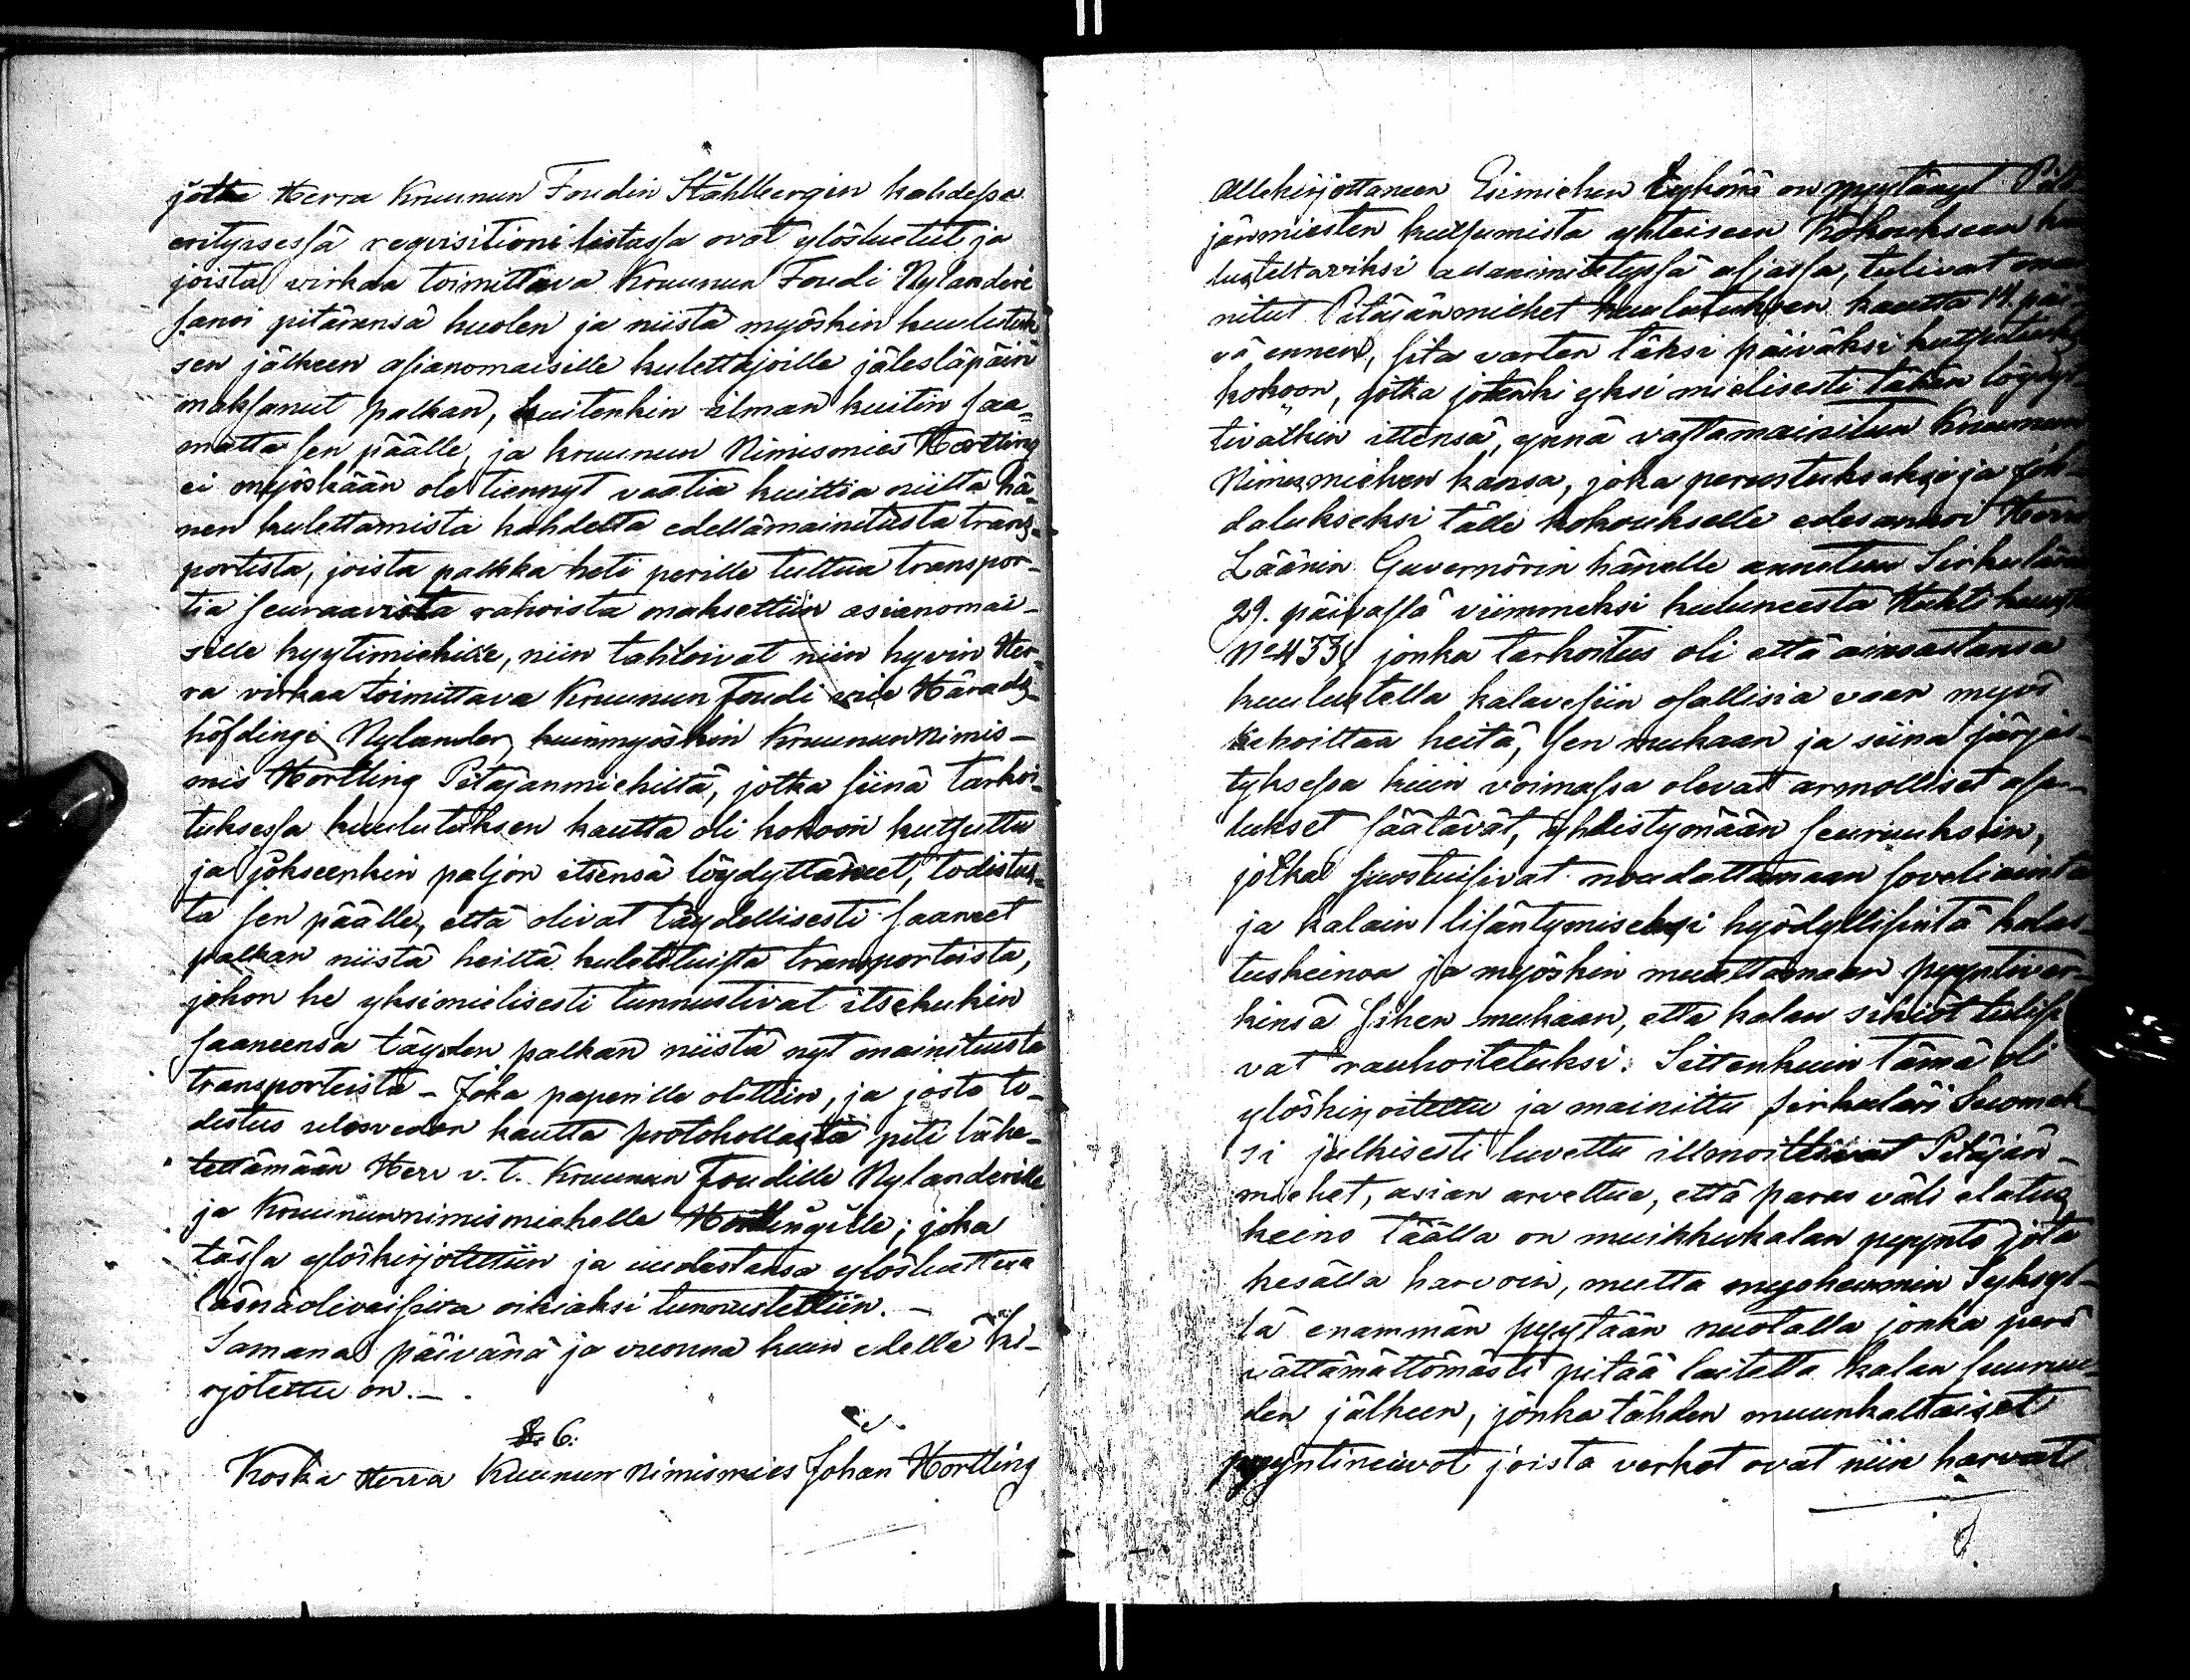 jotka Herra Kruunun Foudin Ståhlbergin kahdessa
erityisessä reqvisitioni listassa ovat ylösluetut ja
joista virkaa toimittava Kruunun Foudi Nylanderi
sanoi pitävänsä huolen ja niistä myöskin kuulutuk
sen jälkeen asianomaisille kulettajoille jälestäpäin
maksanut palkan, kuitenkin ilman kuitin saa-
matta sen päälle, ja kruunun Nimismies Hortling
ei myöskään ole tiennyt vaatia kuittia niiltä hä-
nen kulettamista kahdesta edellämainitusta trans-
portista, joista palkka heti perille tultua transpor-
tia seuraavista rahoista maksettiin asianomai-
sille kyytimiehille, niin tahtoivat niin hyvin Her-
ra virkaa toimittava Kruunun Foudi vice Härads-
höfdingi Nylander, kuinmyöskin Kruununnimis-
mis Hortling Pitäjänmiehiltä, jotka siinä tarkoi-
tuksessa kuulutuksen kautta oli kokoon kutsuttu
ja jokseenkin paljon itsensä löydyttäneet, todistus-
ta sen päälle, että olivat täydellisesti saaneet
palkan niistä heiltä kuletetuista transporteista,
johon he yksimielisesti tunnustivat itsekukin
saaneensa täyden palkan niistä nyt mainituista
transporteista - Joka paperille otettiin, ja josta to-
distus ulosvedon kautta protokollasta piti lähe-
tettämään Herr v. t. Kruunun Foudille Nylanderille
ja Kruununnimismiehelle Hortlingille; joka
tässä ylöskirjotettiin ja uudestansa ylösluettua
läsnäolevaisilta oikiaksi tunnustettiin. -
Samana päivänä ja vuonna kuin edellä ki-
rjotettu on. -
§ 6:
Koska Herra Kuunun Nimismies Johan Hortling
allekirjottaneen Esimiehen tykönä on pyytänyt Pitä
jänmiesten kutsumista yhteiseen Kokoukseen kuu
lusteltaviksi allanimitetyssä asjassa, tulivat mai
nitut Pitäjänmiehet kuulutuksen kautta 14 päi-
vä ennen, sitä varten täksi päiväksi kutsutuksi
kokoon, jotka jotenki yksimielisesti tähän löydyt
tivätkin ittensä, ynnä vastamainitun Kruunun
Nimismiehen kansa, joka perustukseksi ja joh-
datukseksi tälle kokoukselle edesantoi Herra
Läänin Guvernörin hänelle annetun Sirkulärin
29. päivässä viimmeksi kuluneesta Huhtikuusta
No 433, jonka tarkoitus oli että ainoastansa
kuulustella kalavesiin osallisia vaan myös
kehoittaa heitä, sen mukaan ja siinä järjes-
tyksessä kuin voimassa olevat armolliset asse-
tukset säätävät, yhdistymään seuruuksiin,
jotka suostuisivat noudattamaan soveliainta
ja kalain lisäntymiseksi hyödyllisintä kalas-
tuskeinoa ja myöskin muuttamaan pyyntiver-
kinsä siihen mukaan, että kalan sikiöt tulisi
vat rauhoitetuksi. Sittenkuin tämä oli
ylöskirjoitettu ja mainittu sirkuläri Suomek
si julkisesti luvettu illmoittivat Pitäjän-
miehet, asian arveltua, että paras väli elatus
keino täällä on muikkukalan pyynto jota
kesällä harvoin, mutta myohemmin Syksyl-
lä enammän pyytään nuotalla jonka perä
vättämättömästi pitää laitetta kalan suuruu-
den jälkeen, jonka tähden muunkaltaiset
pyyntineuvot joista verkot ovat niin harvat